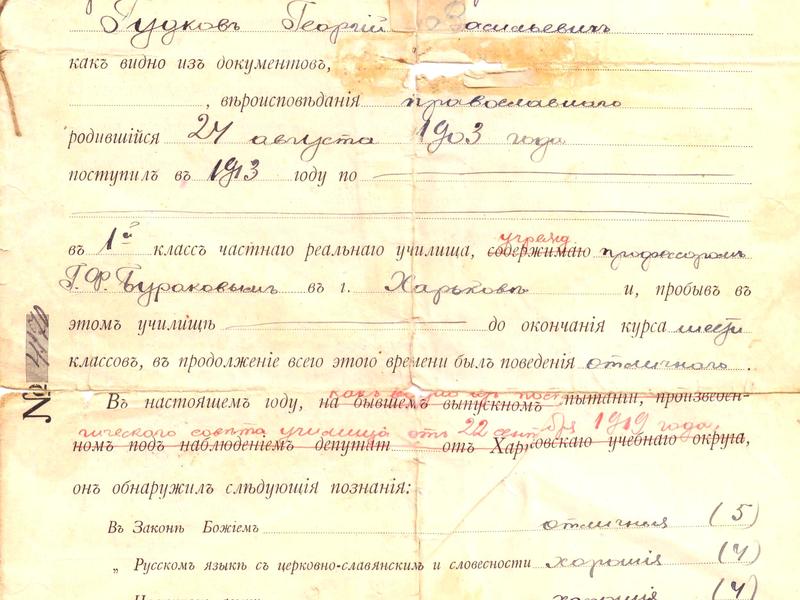 Гудковъ Георгій Васильевичъ
какъ видно изъ документовъ,
, вѣроисповѣданія православнаго
родившійся 24 августа 1903 года
поступилъ въ 1913 году по
въ 1й классъ частнаго реальнаго училища, содержимаго учрежд. профессоромъ
Г. Ф. Бураковымъ въ г. Харьковѣ и, пробывъ въ
этомъ училищѣ до окончанія курса шести
классовъ, въ продолженіе всего этого времени былъ поведенія отличнаго.
№ 4120
какъ видно из
Въ настоящемъ году, на бывшемъ выпускномъ пытаніи, произведен-
гическаго совѣта училища отъ 22 сентября 1919 года,
номъ подъ наблюденіемъ депутат отъ Харьковскаго учебнаго округа,
онъ обнаружилъ слѣдующія познанія:
Въ Законѣ Божіемъ отличныя (5)
„ Русскомъ языкѣ съ церковно-славянскимъ и словесности хорошія (4)
хорошія (4)